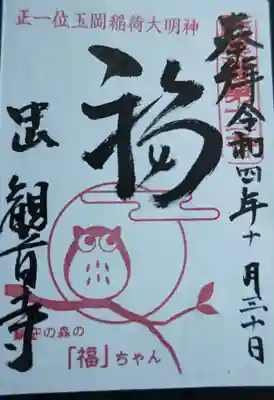 正一位玉岡稲荷大明神
奉拝
令和四年十月三十日
福
出観音寺
守の森の
「福」ちゃん